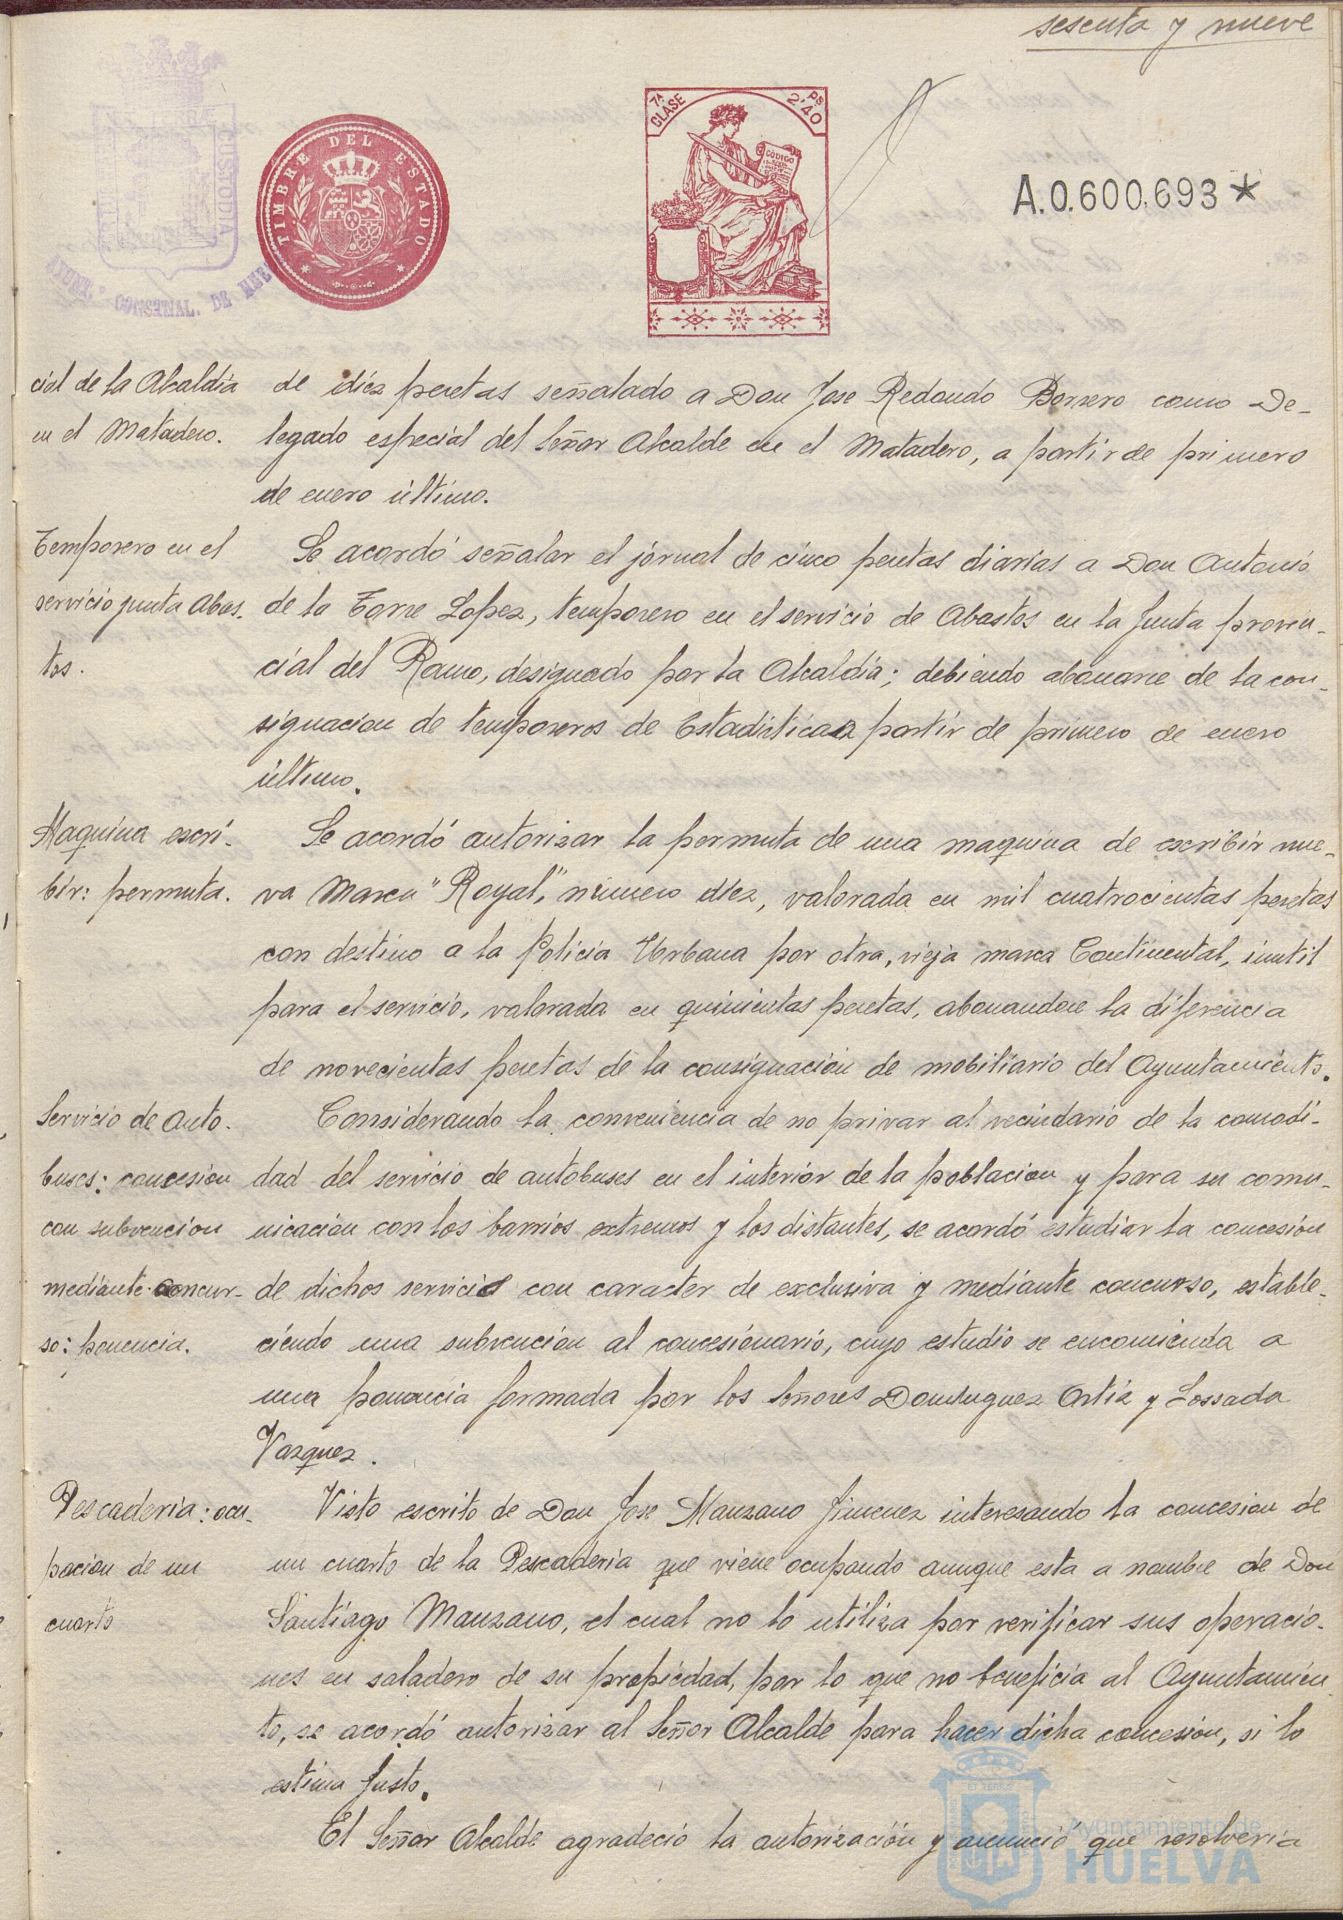 sesenta y nueve
TIMBRE DEL ESTADO
7ª CLASE
PS 2'40
CÓDIGO
A.0.600.693*
cial de la Alcaldia
en el Matadero.
de diez pesetas señalado a Don Jose Redondo Borrero como De-
legado especial del Señor Alcalde en el Matadero, a partir de primero
de enero último.
Temporero en el
servicio junta Abas.
tos.
Se acordó señalar el jornal de cinco pesetas diarias a Don Antonio
de la Torre Lopez, temporero en el servicio de Abastos en la Junta provin-
cial del Ramo, designado por la Alcaldia; debiendo abonarse de la con-
signacion de temporeros de Estadistica a partir de primero de enero
último.
Maquina escri-
bir: permuta.
Se acordó autorizar la permuta de una maquina de escribir nue-
va Marca "Royal", número diez, valorada en mil cuatrocientas pesetas
con destino a la Policia Urbana por otra, vieja marca Continental, inutil
para el servicio, valorada en quinientas pesetas, abonandose la diferencia
de novecientas pesetas de la consignación de mobiliario del Ayuntamiento.
Servicio de auto-
buses: concesion
con subvencion
mediante concur-
so: ponencia.
Considerando la conveniencia de no privar al vecindario de la comodi-
dad del servicio de autobuses en el interior de la poblacion y para su comu-
nicación con los barrios extremos y los distantes, se acordó estudiar la concesión
de dichos servicios con caracter de exclusiva y mediante concurso, estable-
ciendo una subvención al concesionario, cuyo estudio se encomienda a
una ponencia formada por los Señores Dominguez Ortiz y Lossada
Vazquez.
Pescaderia: ocu-
pacion de un
cuarto
Visto escrito de Don Jose Manzano Jimenez interesando la concesion de
un cuarto de la Pescaderia que viene ocupando aunque esta a nombre de Don
Santiago Manzano, el cual no lo utiliza por verificar sus operacio-
nes en saladero de su propiedad, por lo que no beneficia al Ayuntamien
to, se acordó autorizar al Señor Alcalde para hacer dicha concesión, si lo
estima justo.
El Señor Alcalde agradeció la autorización y anunció que resolveria
Ayuntamiento de
HUELVA